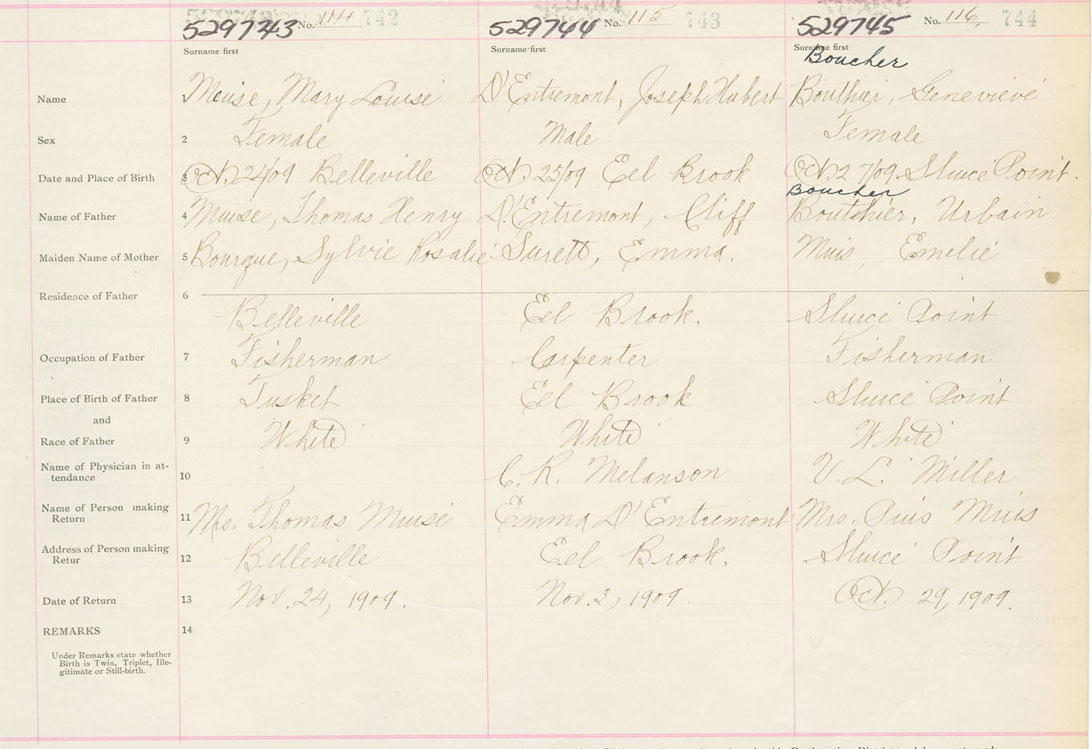 529743 No. 114 742 529744 No. 115 743 529745 No. 116, 744
Surname first Surname first Surname first
Boucher
Name Muise, Mary Louise D'Entremont, Joseph Hubert Bouthier, Genevieve
Sex 2 Female Male Female
Date and Place of Birth 3 Oct. 24/09 Belleville Oct. 25/09 Eel Brook Oct. 27/09. Sluice Point.
Boucher
Name of Father 4 Muise, Thomas Henry D'Entremont, Cliff Boutchier, Urbain
Maiden Name of Mother 5 Bourque, Sylvie Rosalie Surett, Emma. Muis, Emelie
Residence of Father 6
Belleville Eel Brook. Sluice Point
Occupation of Father 7 Fisherman Carpenter Fisherman
Place of Birth of Father 8 Tusket Eel Brook Sluice Point
and
Race of Father 9 White White White
Name of Physician in at-
tendance 10 C. R. Melanson V. L. Miller
Name of Person making
Return 11 Mrs. Thomas Muise Emma D'Entremont Mrs. Pius Muis
Address of Person making
Retur 12 Belleville Eel Brook. Sluice Point
Date of Return 13 Nov. 24, 1909. Nov. 3, 1909. Oct. 29, 1909.
REMARKS 14
Under Remarks state whether
Birth is Twin, Triplet, Ille-
gitimate or Still-birth.